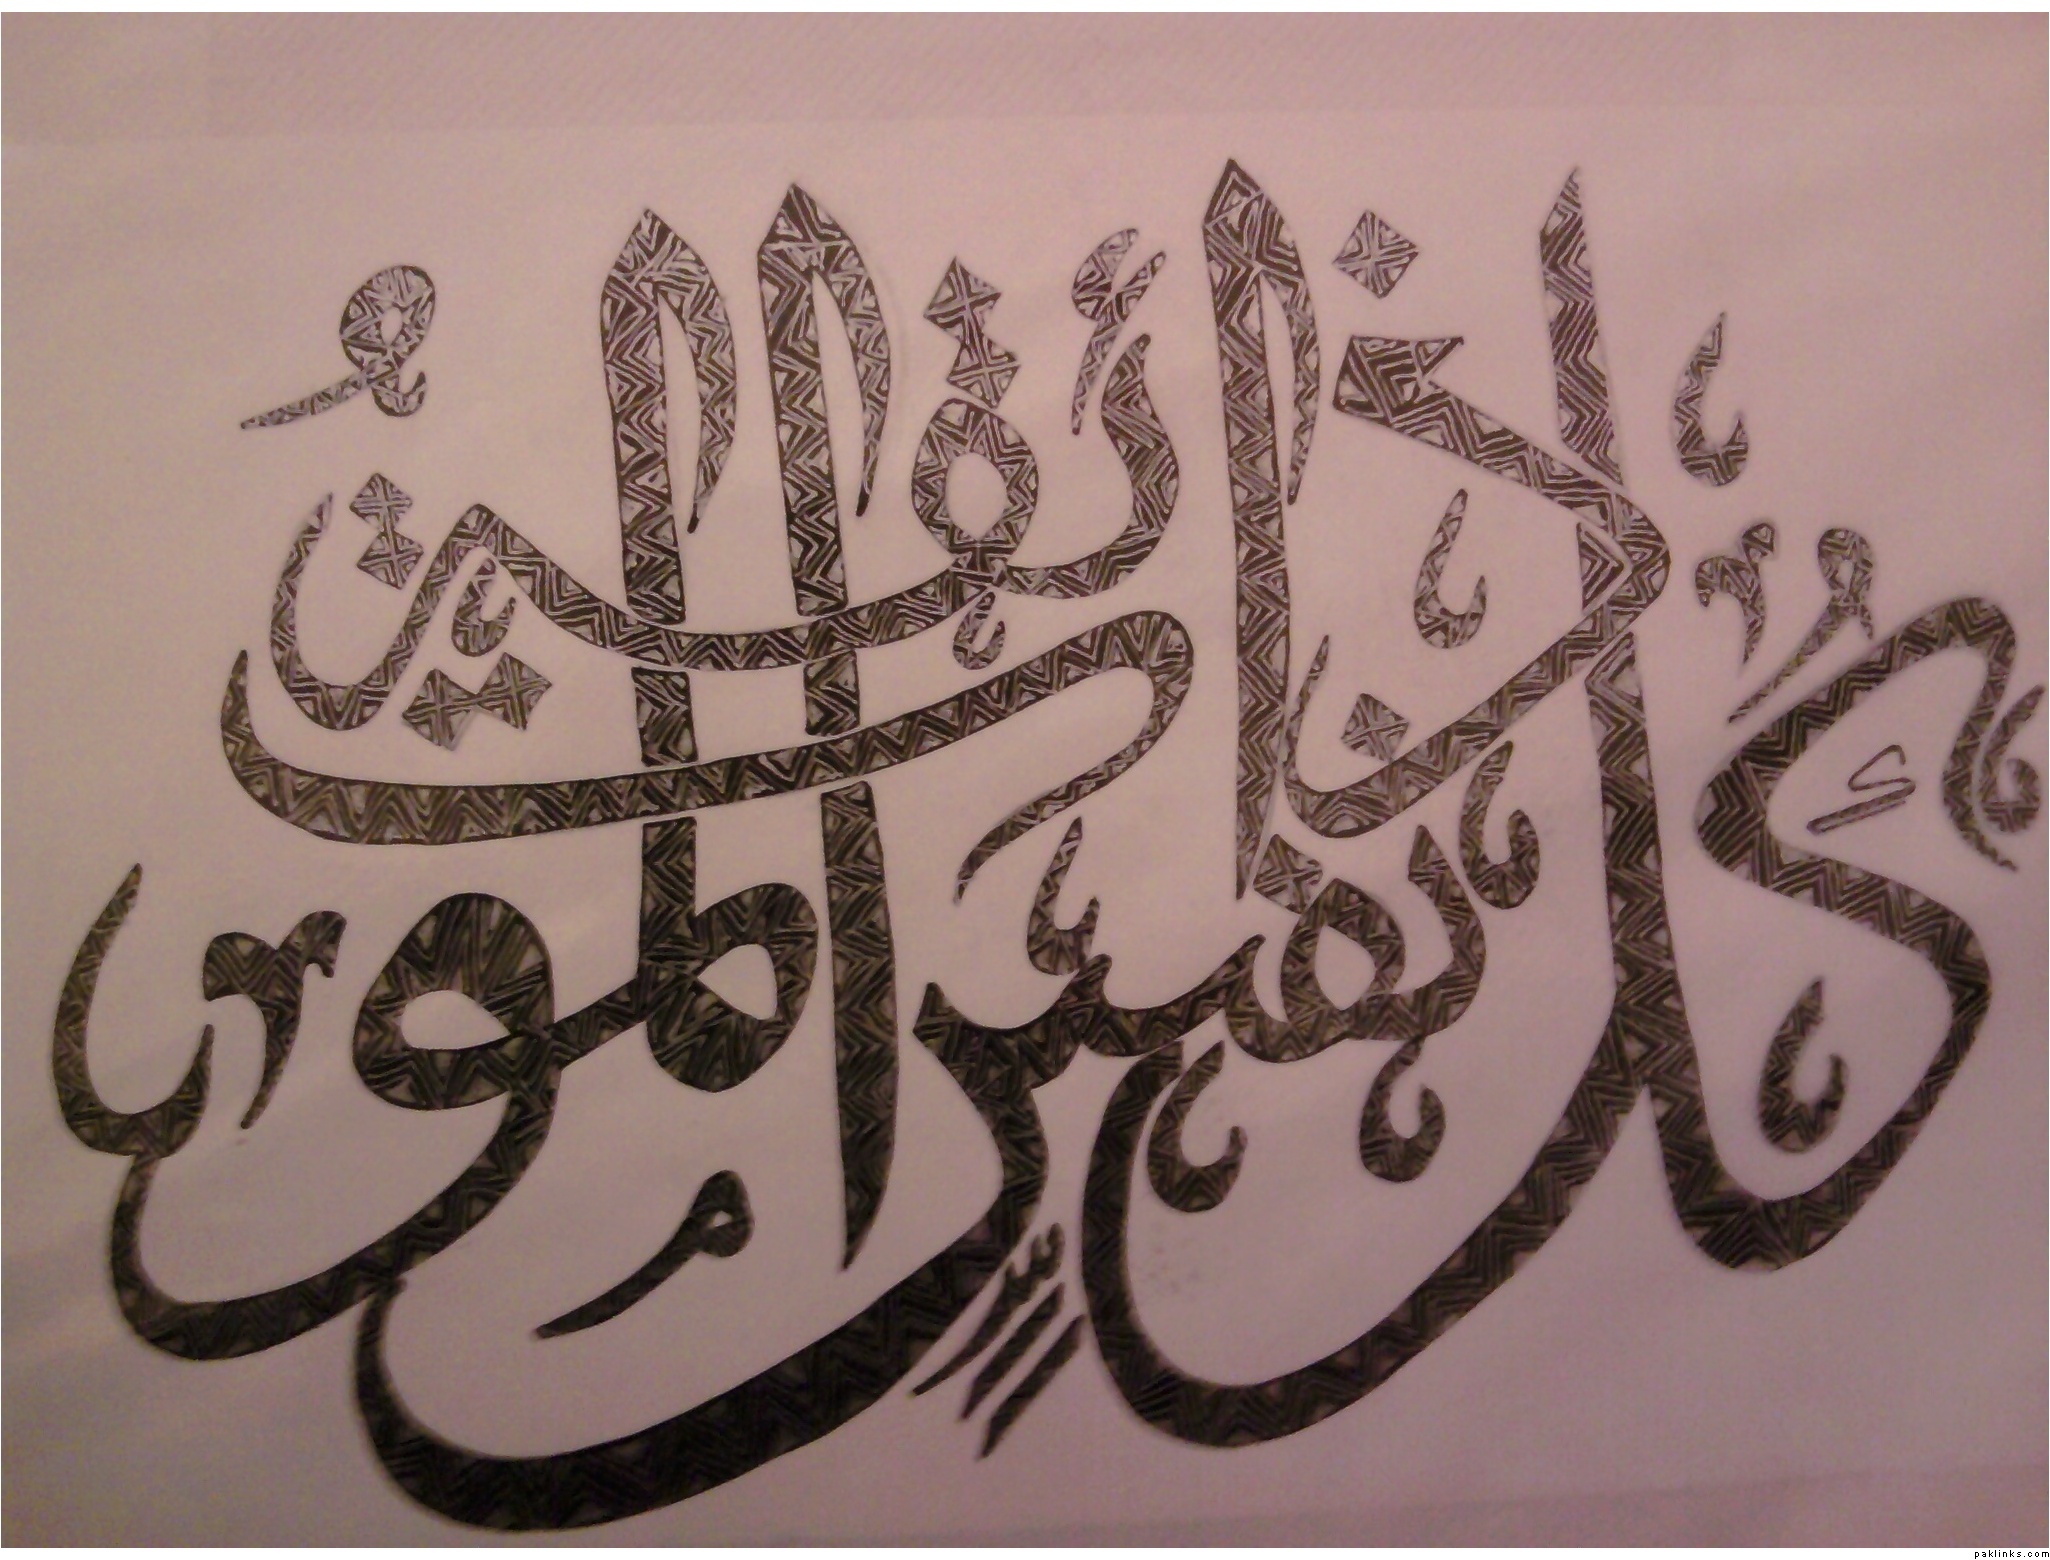 كُلُّ نَفْسٍ ذَائِقَةُ الْمَوْتِ
paklinks.com